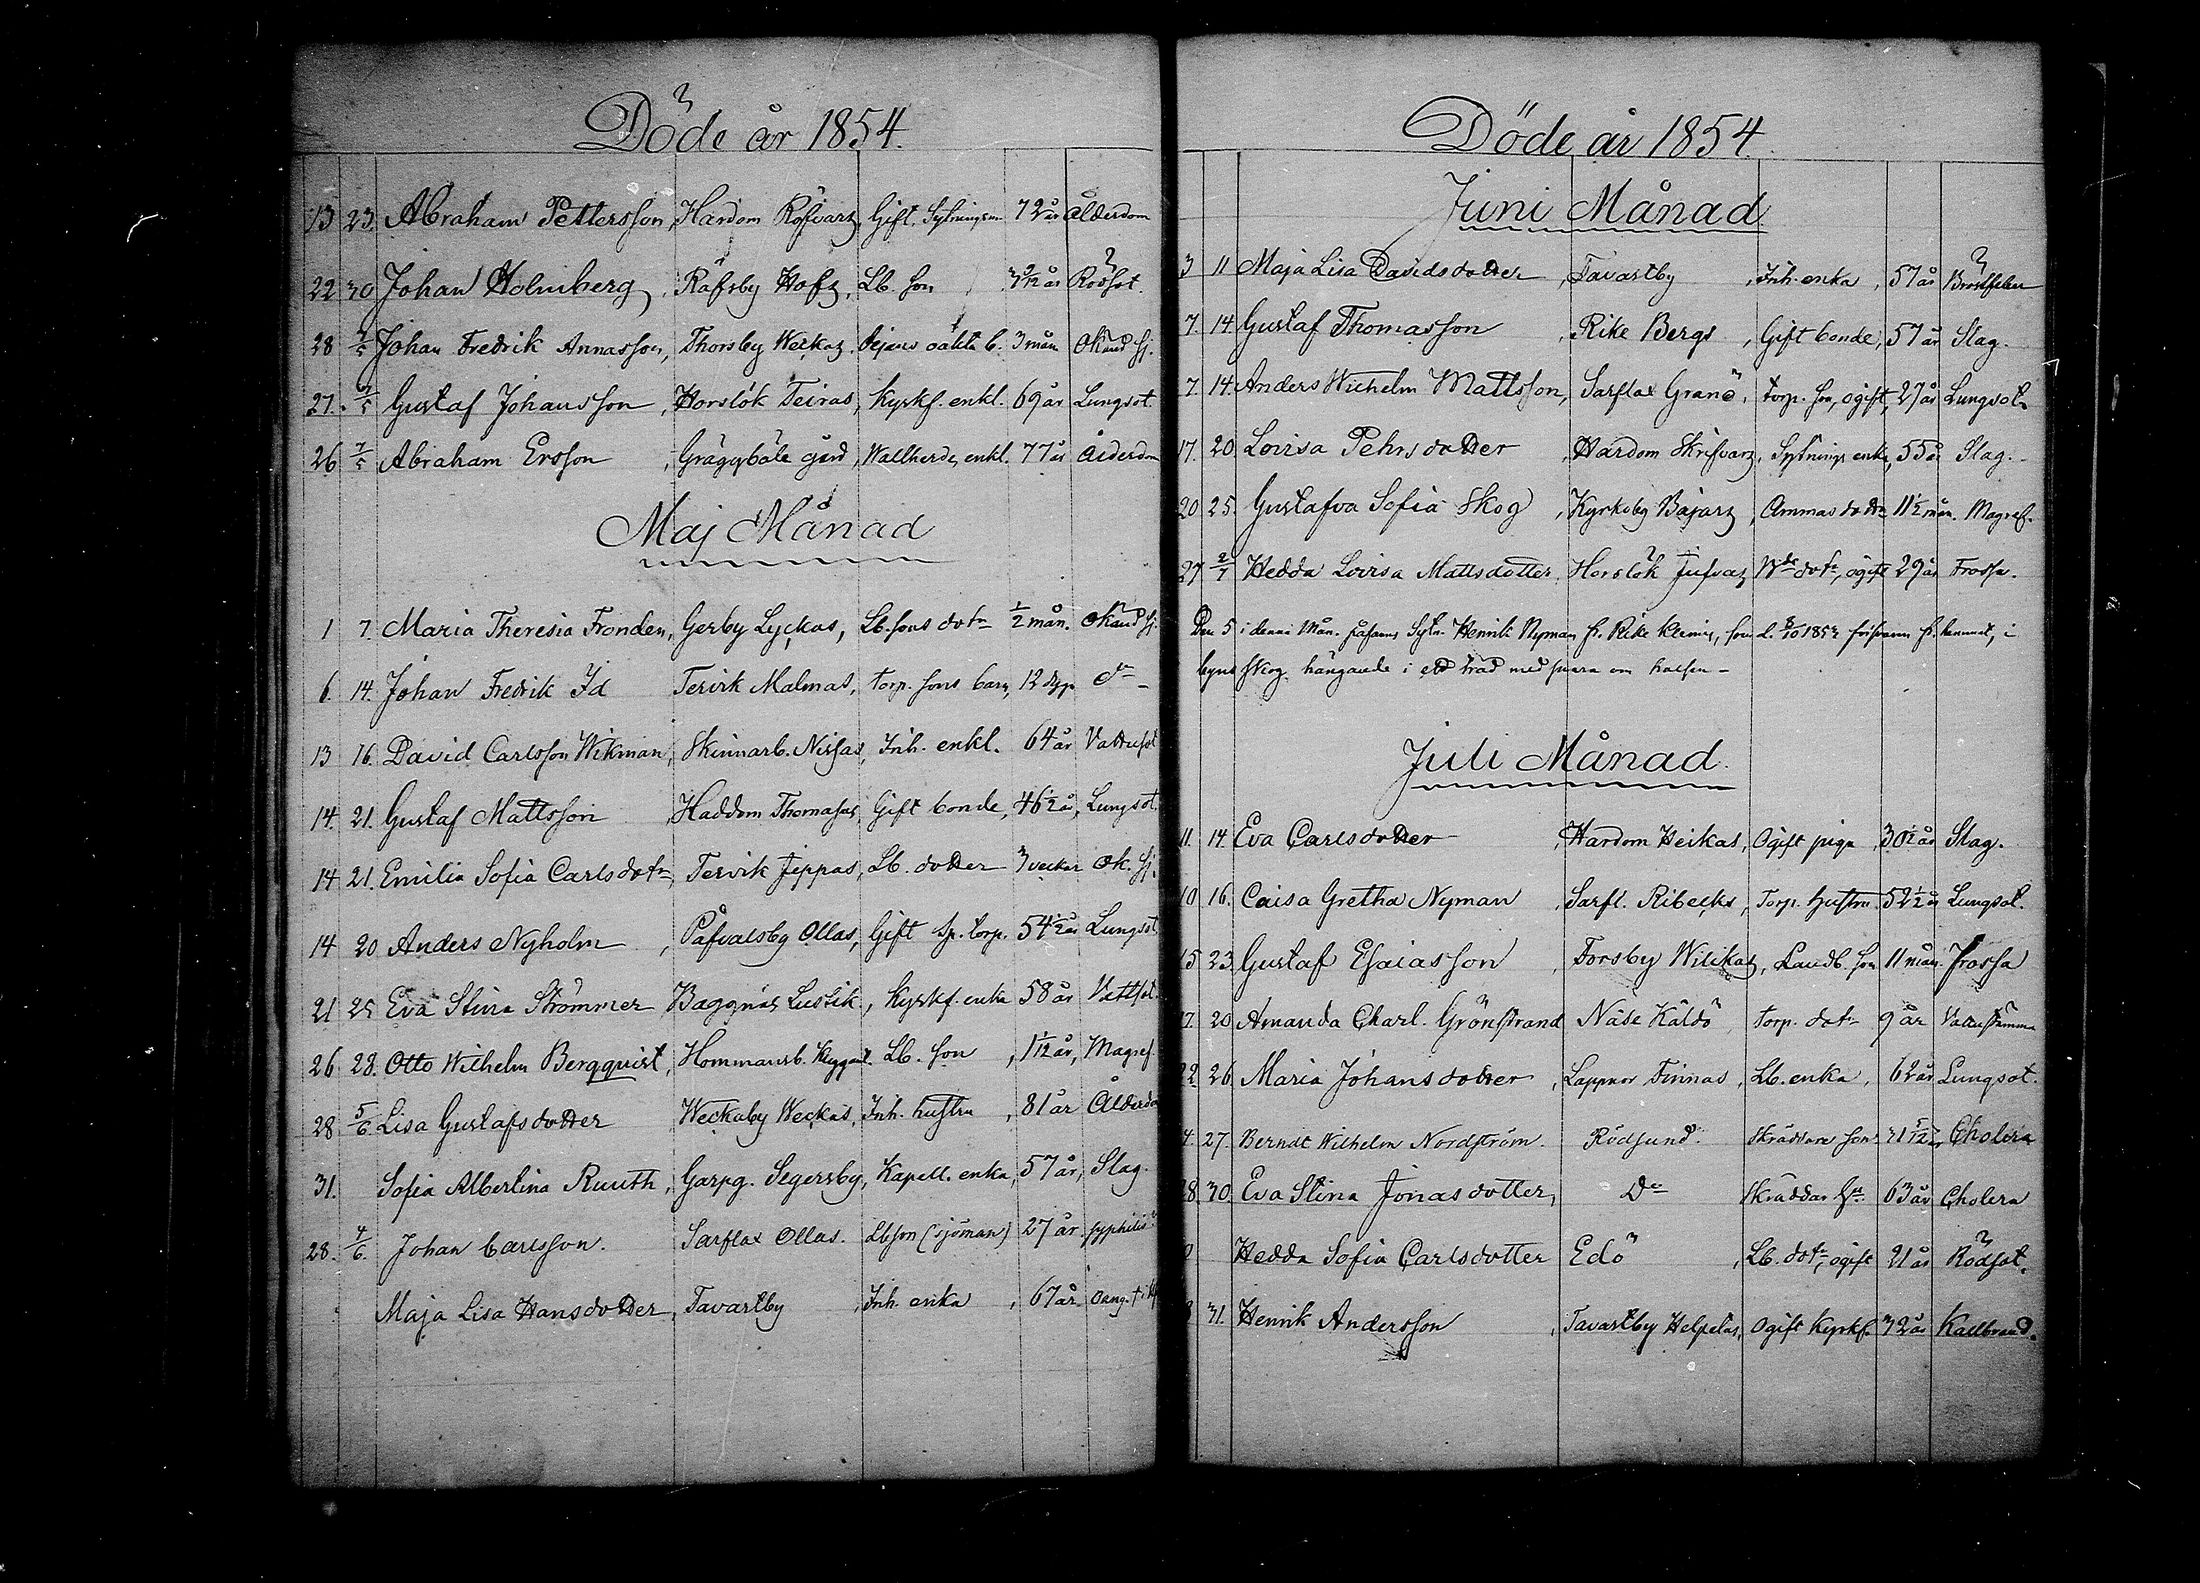 Döde år 1854.
13 23. Abraham Pettersson, Hardom Röfvarz, Gift. Sytningsm 72 år Ålderdom
22 30 Johan Holmberg, Räfsby Hofz, Lb. son 3 9/12 år Rödsot.
28 2/5 Johan Fredrik Annasson, Thorsby Weckaz. Pejans oäkta b. 3 mån Okänd sj.
27. 7/5 Gustaf Johansson, Horslök Teiras, Kyrkf. enkl. 69 år Lungsot.
26 7/5 Abraham Ersson, Gräggböle gård, Wallherde, enkl. 77 år Ålderdom
Maj Månad
1 7. Maria Theresia Fronden, Gerby Lyckas, Lb. sons dotr 1/2 mån. Okänd sj.
6 14. Johan Fredrik Id Tervik Malmas, torp. sons barn, 12 dygn do
13 16. David Carlsson Wikman, Skinnarb. Nissas, Inh. enkl. 64 år Vattusot
14. 21. Gustaf Mattsson, Haddom Thomasas, Gift bonde, 46 1/2 år, Lungsot.
14 21. Emilia Sofia Carlsdotr, Tervik Jeppas, Lb. dotter 3 veckor Ok. sj.
14 20 Anders Nyholm, Påfvalsby Ollas, Gift sp. torp. 54 1/2 år Lungsot
21 25 Eva Stina Strömmer Baggnäs Lustik, Kyrkf. enka 58 år Vattsot
26 28. Otto Wilhelm Bergqvist, Hommansb. Lb. son, 1 1/12 år, Magref.
28 5/6 Lisa Gustafsdotter Weckaby Weckas, Inh. hustru, 81 år Ålderdo
31. Sofia Albertina Ruuth, Garpg. Segersby, Kapell. enka, 57 år, Slag.
28. 4/6. Johan Carlsson. Sarflax Ollas. Lbson (sjöman) 27 år syphilis
Maja Lisa Hansdotter, Tavastby, Inh. enka, 67 år.
Döde år 1854.
Juni Månad
3 11 Maja Lisa Davidsdotter, Tavastby, Inh. enka, 57 år Bröstfeber
7. 14. Gustaf Thomasson, Rike Bergs, Gift bonde, 57 år Slag.
7. 14. Anders Wilhelm Mattsson, Sarflax Granö, torp. son, ogift, 27 år Lungsot.
17. 20 Lovisa Pehrsdotter, Hardom Skrifvarz, Sytnings enka, 55 år Slag.
20 25. Gustafva Sofia Skog, Kyrkoby Bäjarz, Ammas dottr 11 1/2 mån. Magref.
27 2/7 Hedda Lovisa Mattsdotter, Horslök Jufvaz Nde dotr, ogift 29 år Frossa.
Den 5 i denna Mån. påfanns Sytn. Henrik Nyman fr. Rike Klemis, som d. 8/10 1853 försvann fr. hemmet, i
byns skog hängande i ett träd med snara om halsen -
Juli Månad.
11. 14. Eva Carlsdotter, Hardom Heikas, Ogift piga, 30 1/2 år Slag.
10 16. Caisa Gretha Nyman, Sarfl. Ribecks, Torp. hustru. 52 1/2 år Lungsot.
15 23. Gustaf Esaiasson, Forsby Wilikas, Landb. son 11 mån. Frossa
17. 20 Amanda Charl. Grönstrand Näse Käldö torp. dotr 9 år Vattusamma
22. 26. Maria Johansdotter, Lappnor Finnas, Lb. enka, 62 år Lungsot.
4. 27. Berndt Wilhelm Nordström. Rödsund. Skräddare son 31 5/12 Cholera
28. 30. Eva Stina Jonasdotter, Do Skräddar hu 63 år Cholera
Hedda Sofia Carlsdotter Edö, Lb. dotr, ogift 21 år Rödsot.
31. Henrik Andersson, Tavastby Helpelas, Ogift Kyrkf. 32 år Kallbrand.